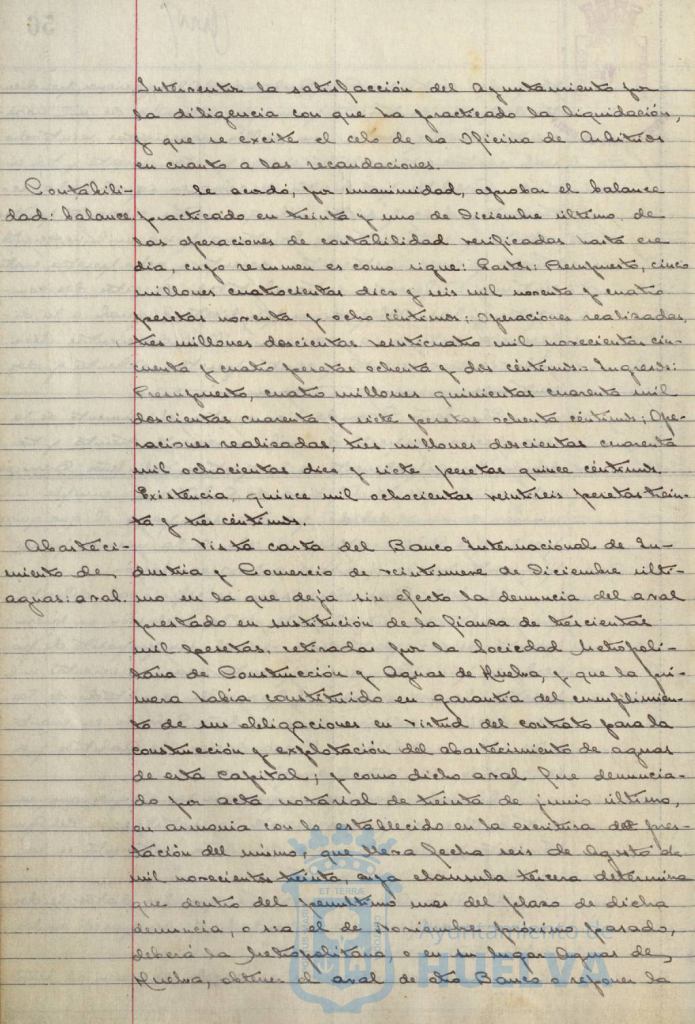 Interventor la satisfacción del Ayuntamiento por
la diligencia con que ha practicado la liquidación,
y que se excite el celo de la Oficina de Arbitrios
en cuanto a las recaudaciones.
Contabili-
dad: balance.
Se acordó, por unanimidad, aprobar el balance
practicado en treinta y uno de Diciembre último, de
las operaciones de contabilidad verificadas hasta ese
día, cuyo resumen es como sigue: Gastos: Presupuesto, cinco
millones cuatrocientas diez y seis mil noventa y cuatro
pesetas noventa y ocho céntimos; Operaciones realizadas,
tres millones doscientas veinticuatro mil novecientas cin-
cuenta y cuatro pesetas ochenta y dos céntimos.- Ingresos:
Presupuesto, cuatro millones quinientas cuarenta mil
doscientas cuarenta y siete pesetas ochenta céntimos; Ope-
raciones realizadas, tres millones doscientas cuarenta
mil ochocientas diez y siete pesetas quince céntimos.
Existencia, quince mil ochocientas veintiseis pesetas trein-
ta y tres céntimos.
Abasteci-
miento de
aguas: aval.
Vista carta del Banco Internacional de In-
dustria y Comercio de veintinueve de Diciembre últi-
mo en la que deja sin efecto la denuncia del aval
prestado en sustitución de la fianza de trescientas
mil pesetas, retiradas por la Sociedad Metropoli-
tana de Construcción y Aguas de Huelva, y que la pri-
mera había constituido en garantía del cumplimien-
to de sus obligaciones en virtud del contrato para la
construcción y explotación del abastecimiento de aguas
de esta capital; y como dicho aval fue denuncia-
do por acta notarial de treinta de junio último,
en armonía con lo establecido en la escritura de pres-
tación del mismo, que lleva fecha seis de Agosto de
mil novecientos treinta, cuya cláusula tercera determina
que dentro del penúltimo mes del plazo de dicha
denuncia, o sea el de Noviembre próximo pasado,
deberá la Metropolitana, o en su lugar Aguas de
Huelva, obtener el aval de otro Banco o reponer la
ET TERRÆ
Ayuntamiento de
HUELVA